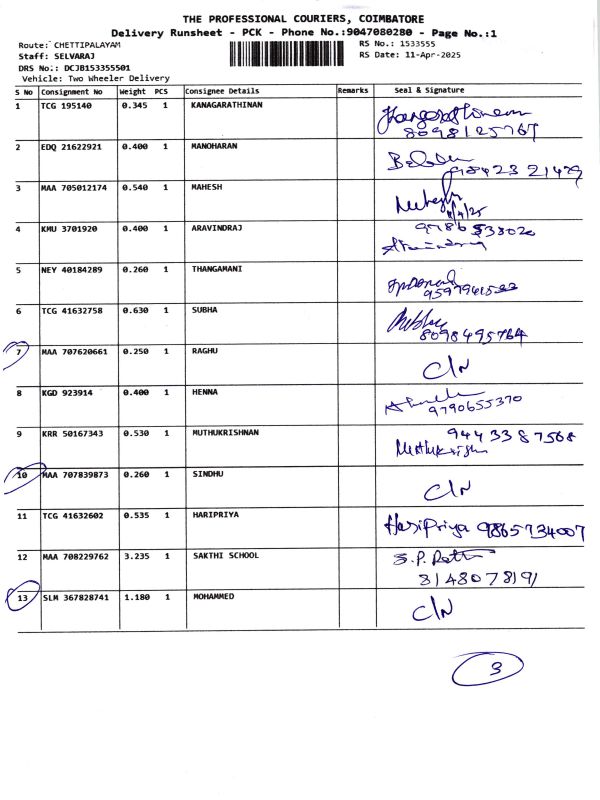 THE PROFESSIONAL COURIERS, COIMBATORE
Delivery Runsheet - PCK - Phone No.:9047080280 - Page No.:1
Route: CHETTIPALAYAM
RS No.: 1533555
Staff: SELVARAJ
RS Date: 11-Apr-2025
DRS No.: DCJB153355501
Vehicle: Two Wheeler Delivery
S No Consignment No Weight PCS Consignee Details Remarks Seal & Signature
1 TCG 195140 0.345 1 KANAGARATHINAN
8098125767
2 EDQ 21622921 0.400 1 MANOHARAN
98423 21479
3 MAA 705012174 0.540 1 MAHESH
4 KMU 3701920 0.400 1 ARAVINDRAJ
5 NEY 40184289 0.260 1 THANGAMANI
6 TCG 41632758 0.630 1 SUBHA
8098495764
7 MAA 707620661 0.250 1 RAGHU C/N
8 KGD 923914 0.400 1 HENNA
9790655370
9 KRR 50167343 0.530 1 MUTHUKRISHNAN 9443387568
10 MAA 707839873 0.260 1 SINDHU C/N
11 TCG 41632602 0.535 1 HARIPRIYA HariPriya 9865734007
12 MAA 708229762 3.235 1 SAKTHI SCHOOL S.P.
3148078191
13 SLM 367828741 1.180 1 MOHAMMED C/N
3